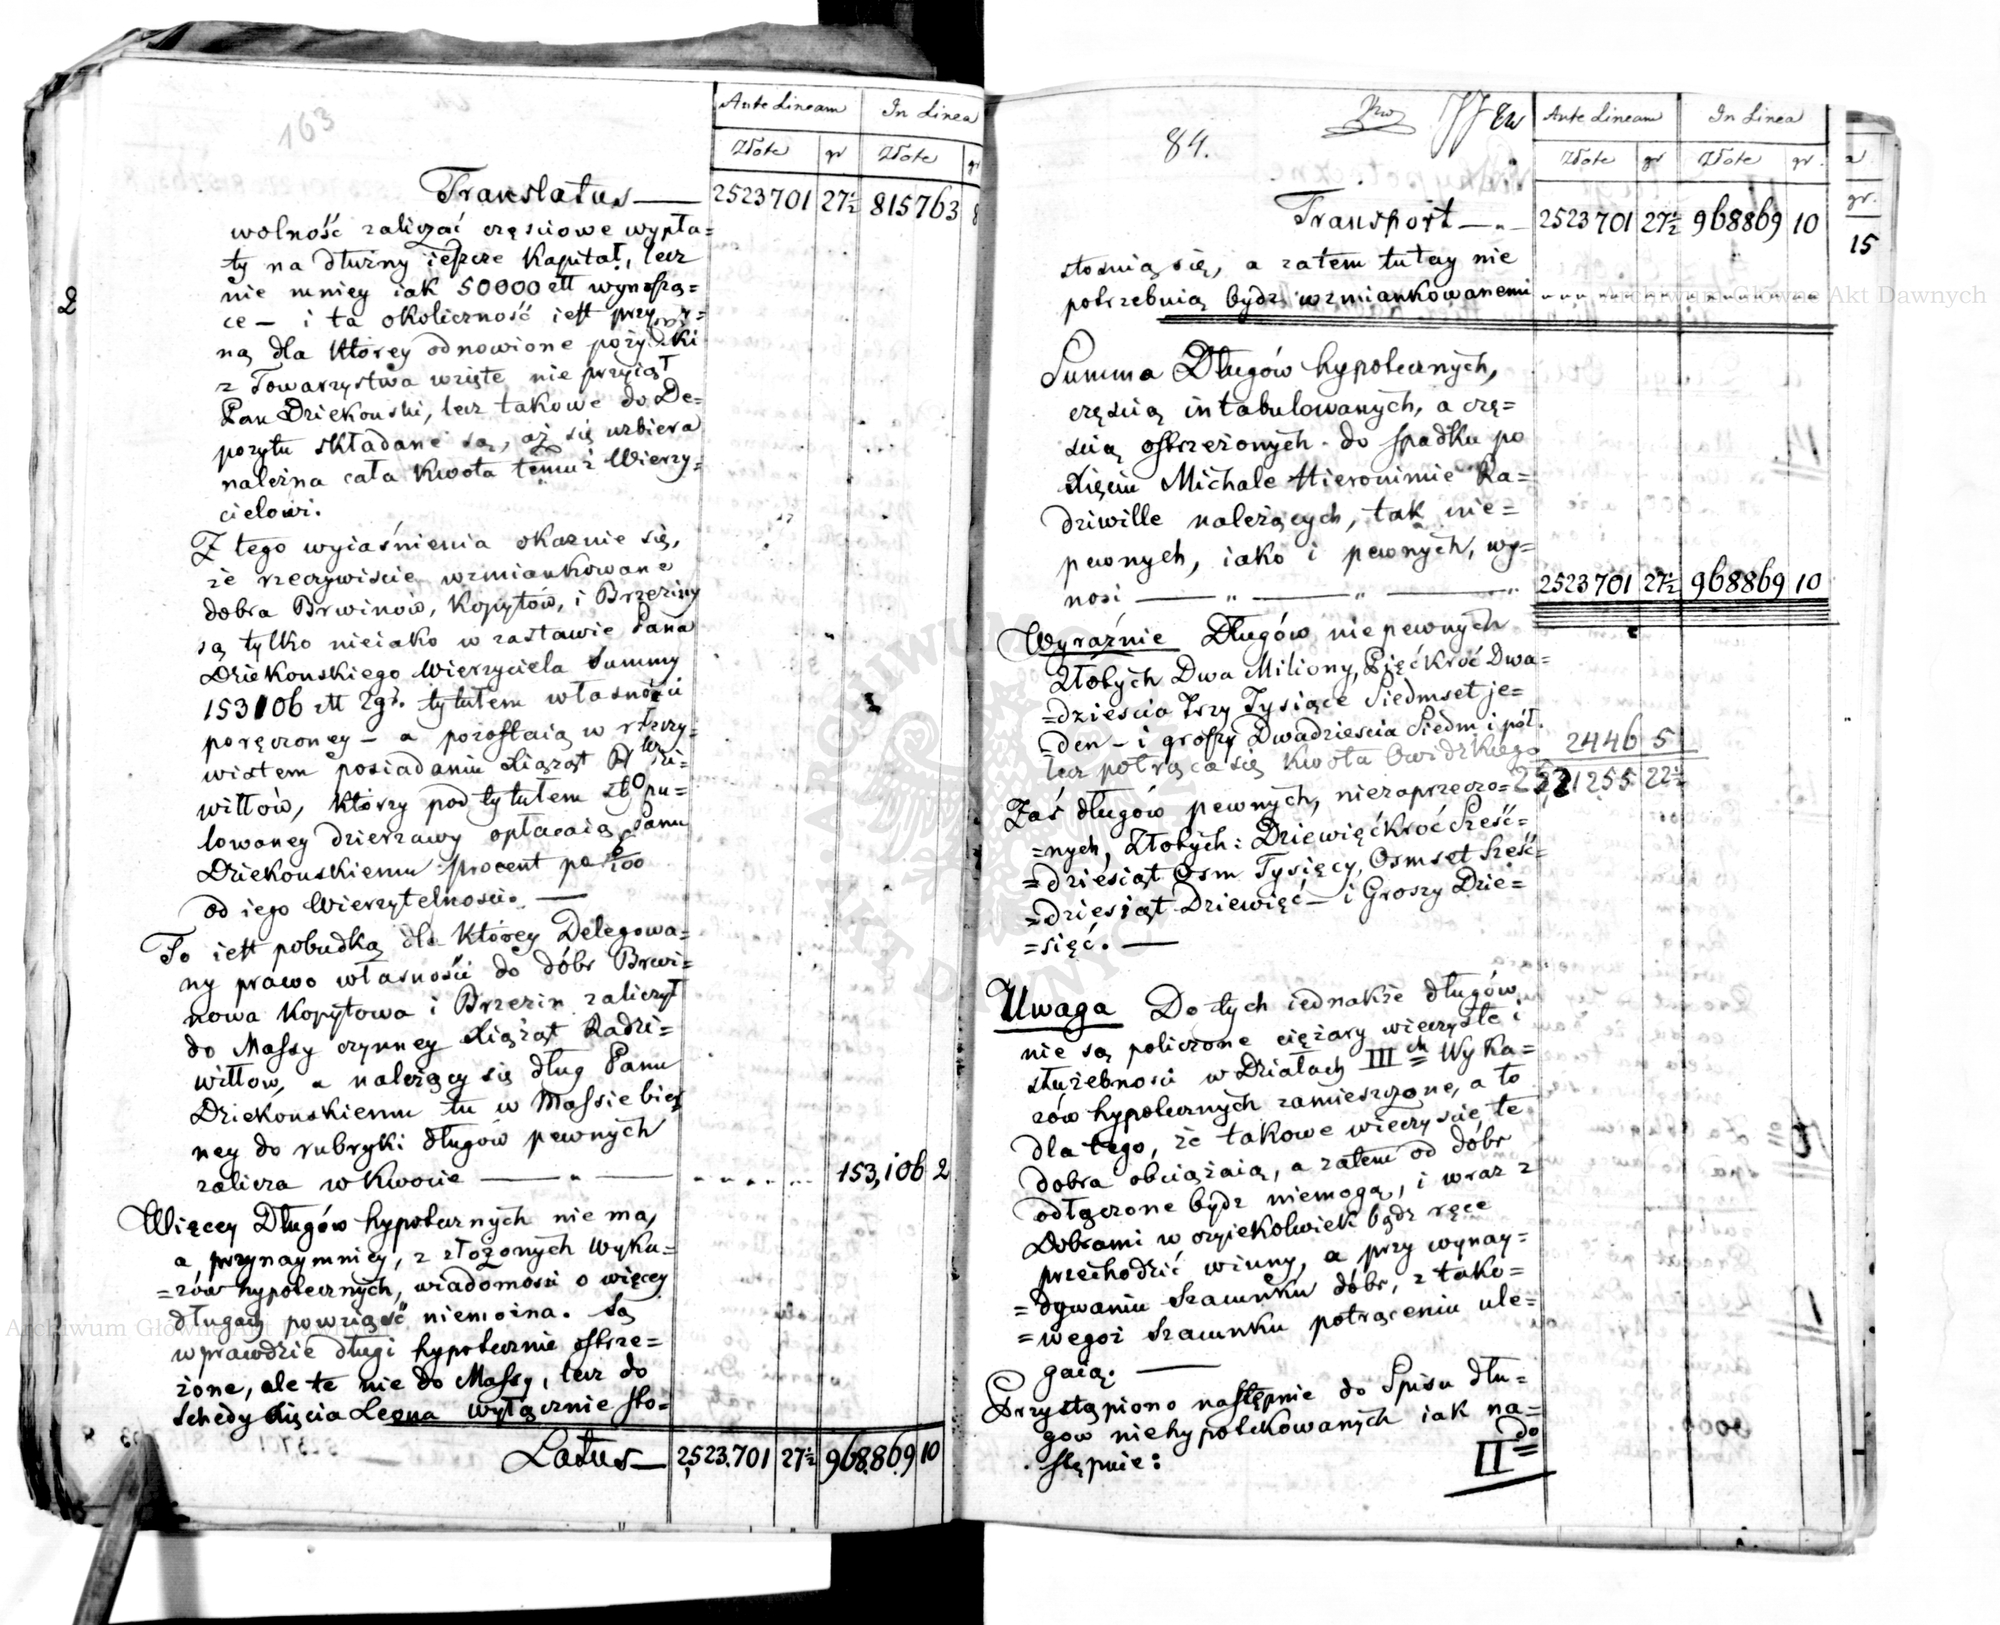 163
Ante Lineam In Linea
Złote gr Złote gr
Translatus — 2523701 27½ 815763 8
wolność zaliczać częściowe wypła=
ty na dłużny ieszcze Kapitał, lecz
nie mniey iak 50000 ett wynoszą=
ce – i ta okoliczność iest przyczy=
ną dla którey odnowione pożyczki
z Towarzystwa wzięte nie przyiął
Pan Dziekoński, lecz takowe do De=
pozytu składane są, aż się uzbiera
należna cała Kwota temuż Wierzy=
cielowi.
Z tego wyiaśnienia okazuie się,
że rzeczywiście wzmiankowane
dobra Brwinów, Kopytów, i Brzeziny
są tylko nieiako w zastawie Pana
Dziekońskiego Wierzyciela Summy
153106 ett 2gr. tytułem własności
poręczoney – a pozostaią w rzeczy=
wistem posiadaniu Xiążąt Radzi=
wiłłów, którzy pod tytułem stypu=
lowaney dzierzawy opłacaią Panu
Dziekońskiemu procent po 6/100
od iego Wierzytelności. —
To iest pobudką dla którey Delegowa=
ny prawo własności do dóbr Brwi=
nowa Kopytowa i Brzezin zaliczył
do Massy czynney Xiążąt Radzi=
wiłłow, a należący się dług Panu
Dziekońskiemu tu w Massie bier
ney do rubryki długów pewnych
zalicza w Kwocie — „ — 153,106 2
Więcey Długów hypotecznych nie ma,
a, przynaymniey, z złożonych Wyka=
=zów hypotecznych, wiadomości o więcey
długach powziąść niemożna. Są
wprawdzie długi hypotecznie ostrze=
żone, ale te nie do Massy, lecz do
Schedy Xięcia Leona wyłącznie sto=
Latus — 2523.701 27½ 968.869 10
84.
Ante Lineam In Linea
Złote gr Złote gr.
Transport — „ — 2523701 27½ 968869 10
15
stosuią się, a zatem tutay nie
potrzebuią bydź wzmiankowanemi
Summa Długów hypotecznych,
częścią intabulowanych, a czę=
ścią ostrzeżonych do spadku po
Xięciu Michale Hieronimie Ra=
dziwille należących, tak nie=
pewnych, iako i pewnych, wy=
nosi — „ — „ — „ 2523701 27½ 968869 10
Wyraźnie Długów niepewnych
Złotych Dwa Miliony, Pięćkroć Dwa=
=dzieścia Trzy Tysiące Siedmset je=
=den – i groszy Dwadzieścia Siedm i pół.
lecz potrąca się Kwota Owidzkiego 2446 5
2521255 22½
Zaś długów pewnych, niezaprzeczo=
=nych, Złotych: Dziewięćkroć Sześć=
=dziesiąt Osm Tysięcy, Osmset Sześć=
=dziesiąt Dziewięć – i Groszy Dzie=
=sięć. —
Uwaga Do tych iednakże długów
nie są policzone ciężary wieczyste i
służebności w Działach III ch Wyka=
zów hypotecznych zamieszczone, a to
dla tego, że takowe wieczyście te
dobra obciążaią, a zatem od dóbr
odłączone bydź niemogą, i wraz z
Dobrami w czyiekolwiek bądź ręce
przechodzić winny, a przy wynay=
=dywaniu Szacunku dóbr, z tako=
=wegoż Szacunku potrąceniu ule=
gaią. —
Przystąpiono następnie do Spisu dłu=
gow niehypotekowanych iak na=
stępnie:
II do
Archiwum Główne Akt Dawnych
Archiwum Główne Akt Dawnych